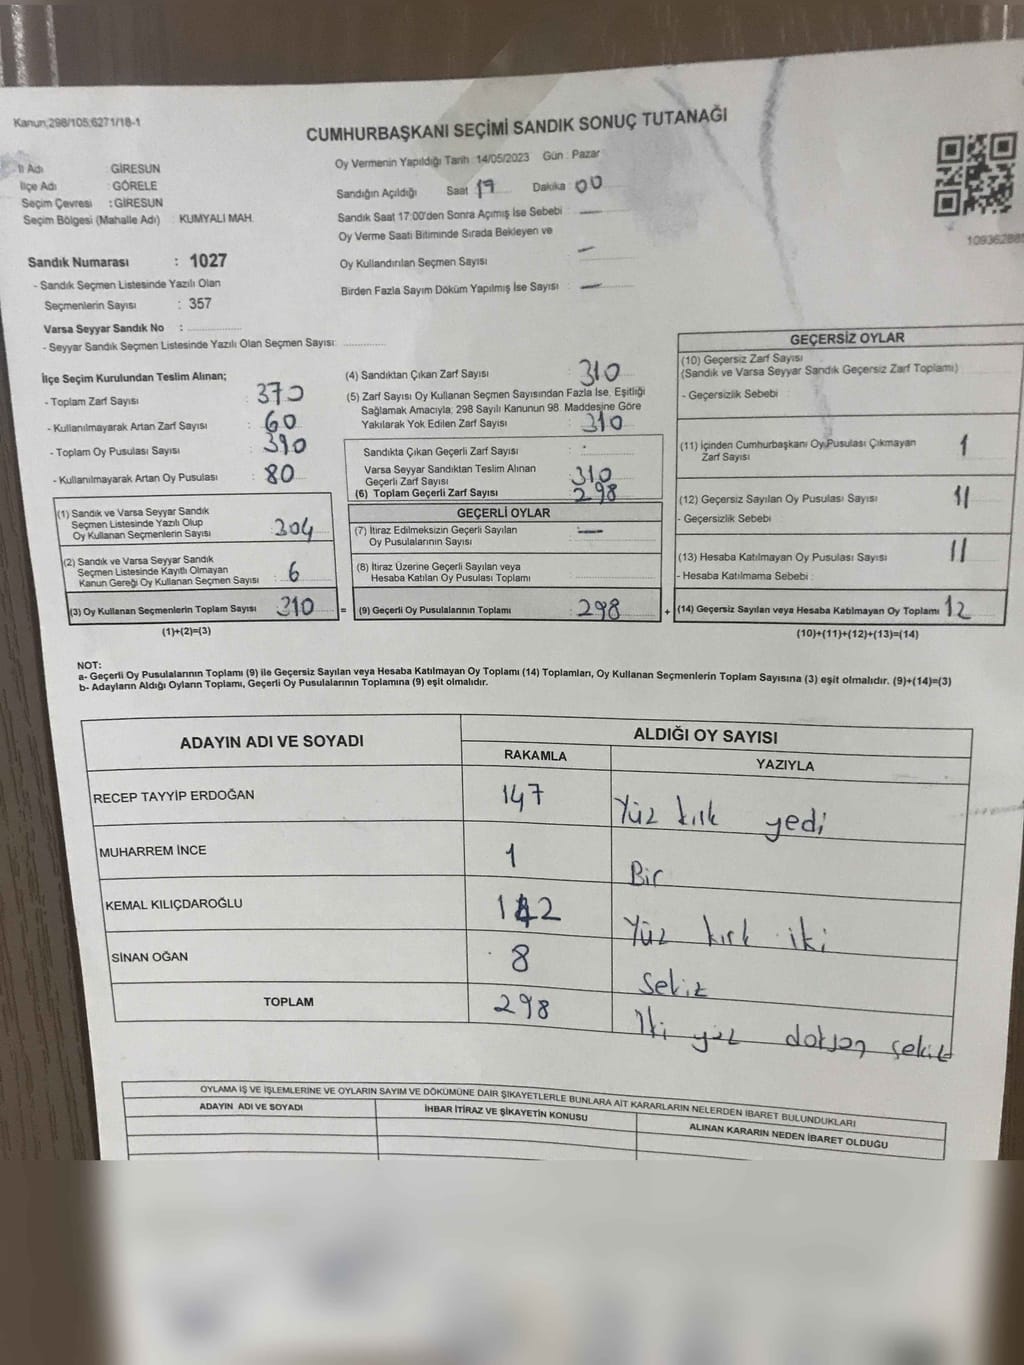 Kanun;298/105;6271/18-1
CUMHURBAŞKANI SEÇİMİ SANDIK SONUÇ TUTANAĞI
İl Adı : GİRESUN
İlçe Adı : GÖRELE
Seçim Çevresi : GİRESUN
Seçim Bölgesi (Mahalle Adı) : KUMYALI MAH.
Oy Vermenin Yapıldığı Tarih : 14/05/2023 Gün : Pazar
Sandığın Açıldığı Saat 17 Dakika : 00
Sandık Saat 17:00'den Sonra Açımış İse Sebebi : —
Oy Verme Saati Bitiminde Sırada Bekleyen ve
Oy Kullandırılan Seçmen Sayısı —
Birden Fazla Sayım Döküm Yapılmış İse Sayısı : —
Sandık Numarası : 1027
- Sandık Seçmen Listesinde Yazılı Olan
Seçmenlerin Sayısı : 357
Varsa Seyyar Sandık No :
- Seyyar Sandık Seçmen Listesinde Yazılı Olan Seçmen Sayısı:
İlçe Seçim Kurulundan Teslim Alınan;
- Toplam Zarf Sayısı : 370
- Kullanılmayarak Artan Zarf Sayısı : 60
- Toplam Oy Pusulası Sayısı : 390
- Kullanılmayarak Artan Oy Pusulası : 80
(1) Sandık ve Varsa Seyyar Sandık
Seçmen Listesinde Yazılı Olup
Oy Kullanan Seçmenlerin Sayısı : 304
(2) Sandık ve Varsa Seyyar Sandık
Seçmen Listesinde Kayıtlı Olmayan
Kanun Gereği Oy Kullanan Seçmen Sayısı : 6
(3) Oy Kullanan Seçmenlerin Toplam Sayısı : 310 =
(1)+(2)=(3)
(4) Sandıktan Çıkan Zarf Sayısı : 310
(5) Zarf Sayısı Oy Kullanan Seçmen Sayısından Fazla İse, Eşitliği
Sağlamak Amacıyla, 298 Sayılı Kanunun 98. Maddesine Göre
Yakılarak Yok Edilen Zarf Sayısı : 310
Sandıkta Çıkan Geçerli Zarf Sayısı :
Varsa Seyyar Sandıktan Teslim Alınan
Geçerli Zarf Sayısı : 310
(6) Toplam Geçerli Zarf Sayısı : 298
GEÇERLİ OYLAR
(7) İtiraz Edilmeksizin Geçerli Sayılan : —
Oy Pusulalarının Sayısı
(8) İtiraz Üzerine Geçerli Sayılan veya
Hesaba Katılan Oy Pusulası Toplamı :
(9) Geçerli Oy Pusulalarının Toplamı : 298 +
GEÇERSİZ OYLAR
(10) Geçersiz Zarf Sayısı
(Sandık ve Varsa Seyyar Sandık Geçersiz Zarf Toplamı)
- Geçersizlik Sebebi :
(11) İçinden Cumhurbaşkanı Oy Pusulası Çıkmayan
Zarf Sayısı 1
(12) Geçersiz Sayılan Oy Pusulası Sayısı 11
- Geçersizlik Sebebi :
(13) Hesaba Katılmayan Oy Pusulası Sayısı 11
- Hesaba Katılmama Sebebi :
(14) Geçersiz Sayılan veya Hesaba Katılmayan Oy Toplamı : 12
(10)+(11)+(12)+(13)=(14)
NOT:
a- Geçerli Oy Pusulalarının Toplamı (9) ile Geçersiz Sayılan veya Hesaba Katılmayan Oy Toplamı (14) Toplamları, Oy Kullanan Seçmenlerin Toplam Sayısına (3) eşit olmalıdır. (9)+(14)=(3)
b- Adayların Aldığı Oyların Toplamı, Geçerli Oy Pusulalarının Toplamına (9) eşit olmalıdır.
ADAYIN ADI VE SOYADI ALDIĞI OY SAYISI
RAKAMLA YAZIYLA
RECEP TAYYİP ERDOĞAN 147 Yüz kırk yedi
MUHARREM İNCE 1 Bir
KEMAL KILIÇDAROĞLU 142 Yüz kırk iki
SİNAN OĞAN 8 Sekiz
TOPLAM 298 İki yüz doksan sekiz
OYLAMA İŞ VE İŞLEMLERİNE VE OYLARIN SAYIM VE DÖKÜMÜNE DAİR ŞİKAYETLERLE BUNLARA AİT KARARLARIN NELERDEN İBARET BULUNDUKLARI
ADAYIN ADI VE SOYADI İHBAR İTİRAZ VE ŞİKAYETİN KONUSU ALINAN KARARIN NEDEN İBARET OLDUĞU